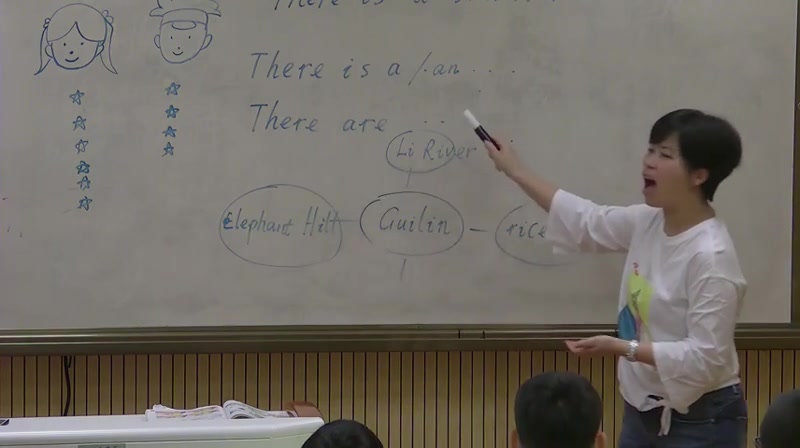 There is a
There is a / an ...
There are ...
Li River
Elephant Hill
Guilin
rice